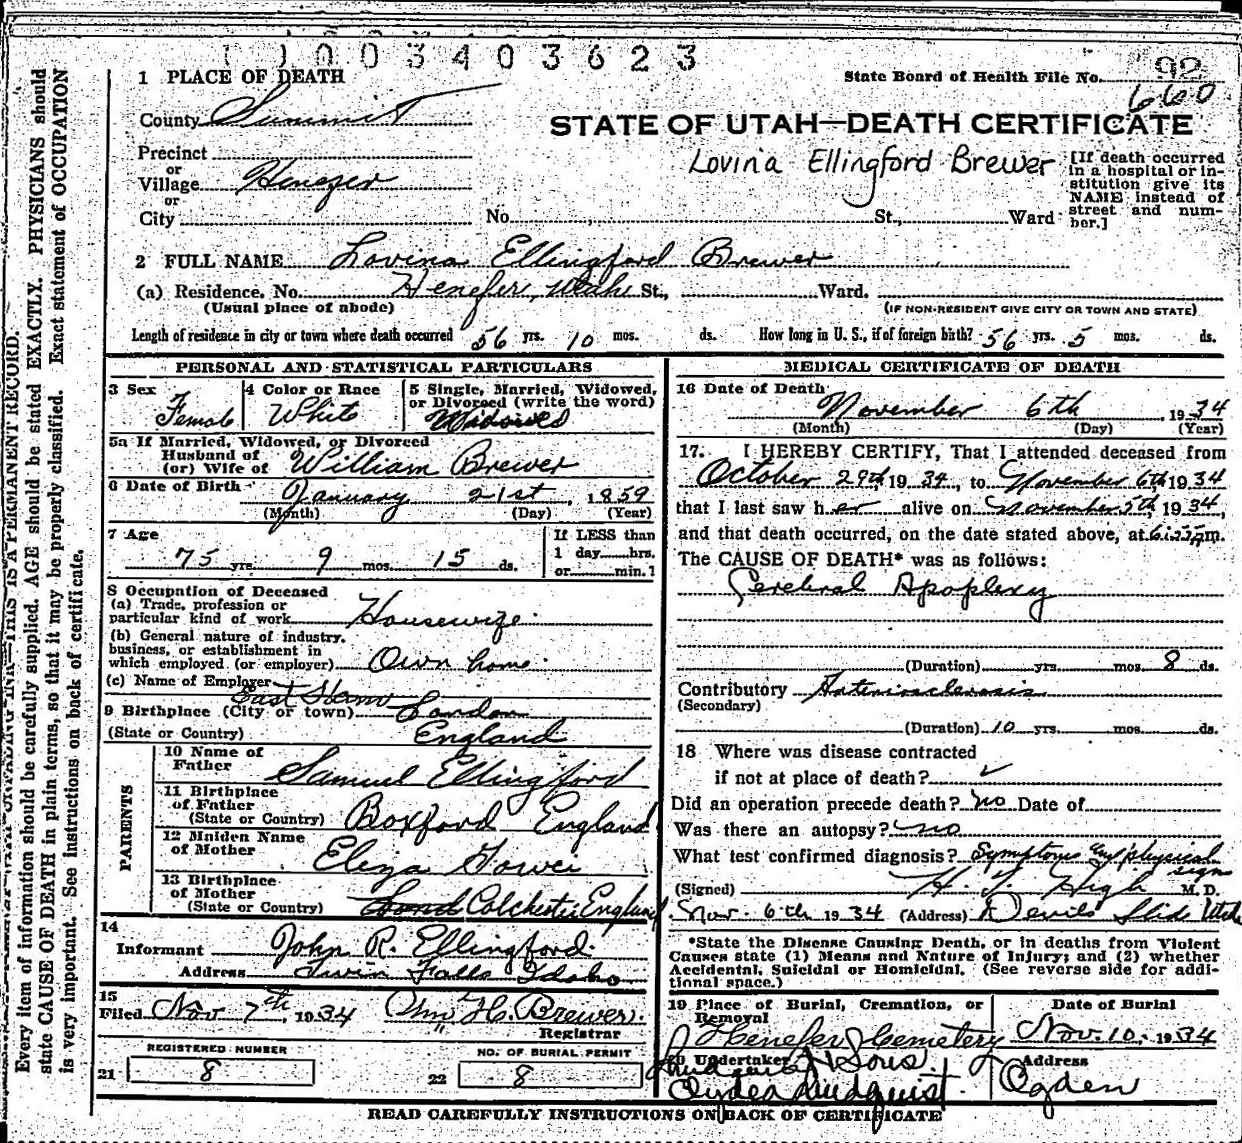 1 1003403623
1 PLACE OF DEATH
State Board of Health File No. 92
660
County Summit
STATE OF UTAH—DEATH CERTIFICATE
Precinct
Lovina Ellingford Brewer
[If death occurred in a hospital or institution give its NAME instead of street and number.]
or
Village Henefer
or
City No. St., Ward
2 FULL NAME Lovina Ellingford Brewer
(a) Residence. No. Henefer, Utah St., Ward.
(Usual place of abode) (IF NON-RESIDENT GIVE CITY OR TOWN AND STATE)
Length of residence in city or town where death occurred 56 yrs. 10 mos. ds. How long in U. S., if of foreign birth? 56 yrs. 5 mos. ds.
PERSONAL AND STATISTICAL PARTICULARS
3 Sex Female
4 Color or Race White
5 Single, Married, Widowed, or Divorced (write the word) Widowed
5a If Married, Widowed, or Divorced
Husband of
(or) Wife of William Brewer
6 Date of Birth January 21st, 1859
(Month) (Day) (Year)
7 Age
75 yrs. 9 mos. 15 ds.
If LESS than
1 day hrs.
or min.?
8 Occupation of Deceased
(a) Trade, profession or
particular kind of work Housewife
(b) General nature of industry,
business, or establishment in
which employed (or employer) Own home
(c) Name of Employer
East Ham
9 Birthplace (City or town) London
(State or Country) England
PARENTS
10 Name of
Father Samuel Ellingford
11 Birthplace
of Father
(State or Country) Boxford England
12 Maiden Name
of Mother Eliza
13 Birthplace
of Mother
(State or Country) Colchester England
14
Informant John R. Ellingford.
Address Twin Falls Idaho
15
Filed Nov 7th, 1934 Wm H. Brewer.
Registrar
REGISTERED NUMBER
21 8
NO. OF BURIAL PERMIT
22 8
MEDICAL CERTIFICATE OF DEATH
16 Date of Death
November 6th 1934
(Month) (Day) (Year)
17. I HEREBY CERTIFY, That I attended deceased from
October 29th 1934, to November 6th 1934
that I last saw her alive on November 5th, 1934,
and that death occurred, on the date stated above, at 6:25 p.m.
The CAUSE OF DEATH* was as follows:
Cerebral Apoplexy
(Duration) yrs. mos. 8 ds.
Contributory Arteriosclerosis
(Secondary)
(Duration) 10 yrs. mos. ds.
18 Where was disease contracted
if not at place of death?
Did an operation precede death? no Date of
Was there an autopsy? no
What test confirmed diagnosis? Symptoms and physical signs
(Signed) H. High M. D.
Nov. 6th 1934 (Address) Devils Slide Utah
*State the Disease Causing Death, or in deaths from Violent
Causes state (1) Means and Nature of Injury; and (2) whether
Accidental, Suicidal or Homicidal. (See reverse side for addi-
tional space.)
19 Place of Burial, Cremation, or
Removal
Henefer Cemetery
Date of Burial
Nov. 10, 1934
20 Undertaker
Lindquist & Sons
Lindquist
Address
Ogden
READ CAREFULLY INSTRUCTIONS ON BACK OF CERTIFICATE
THIS IS A PERMANENT RECORD.
Every item of information should be carefully supplied. AGE should be stated EXACTLY. PHYSICIANS should
state CAUSE OF DEATH in plain terms, so that it may be properly classified. Exact statement of OCCUPATION
is very important. See instructions on back of certificate.